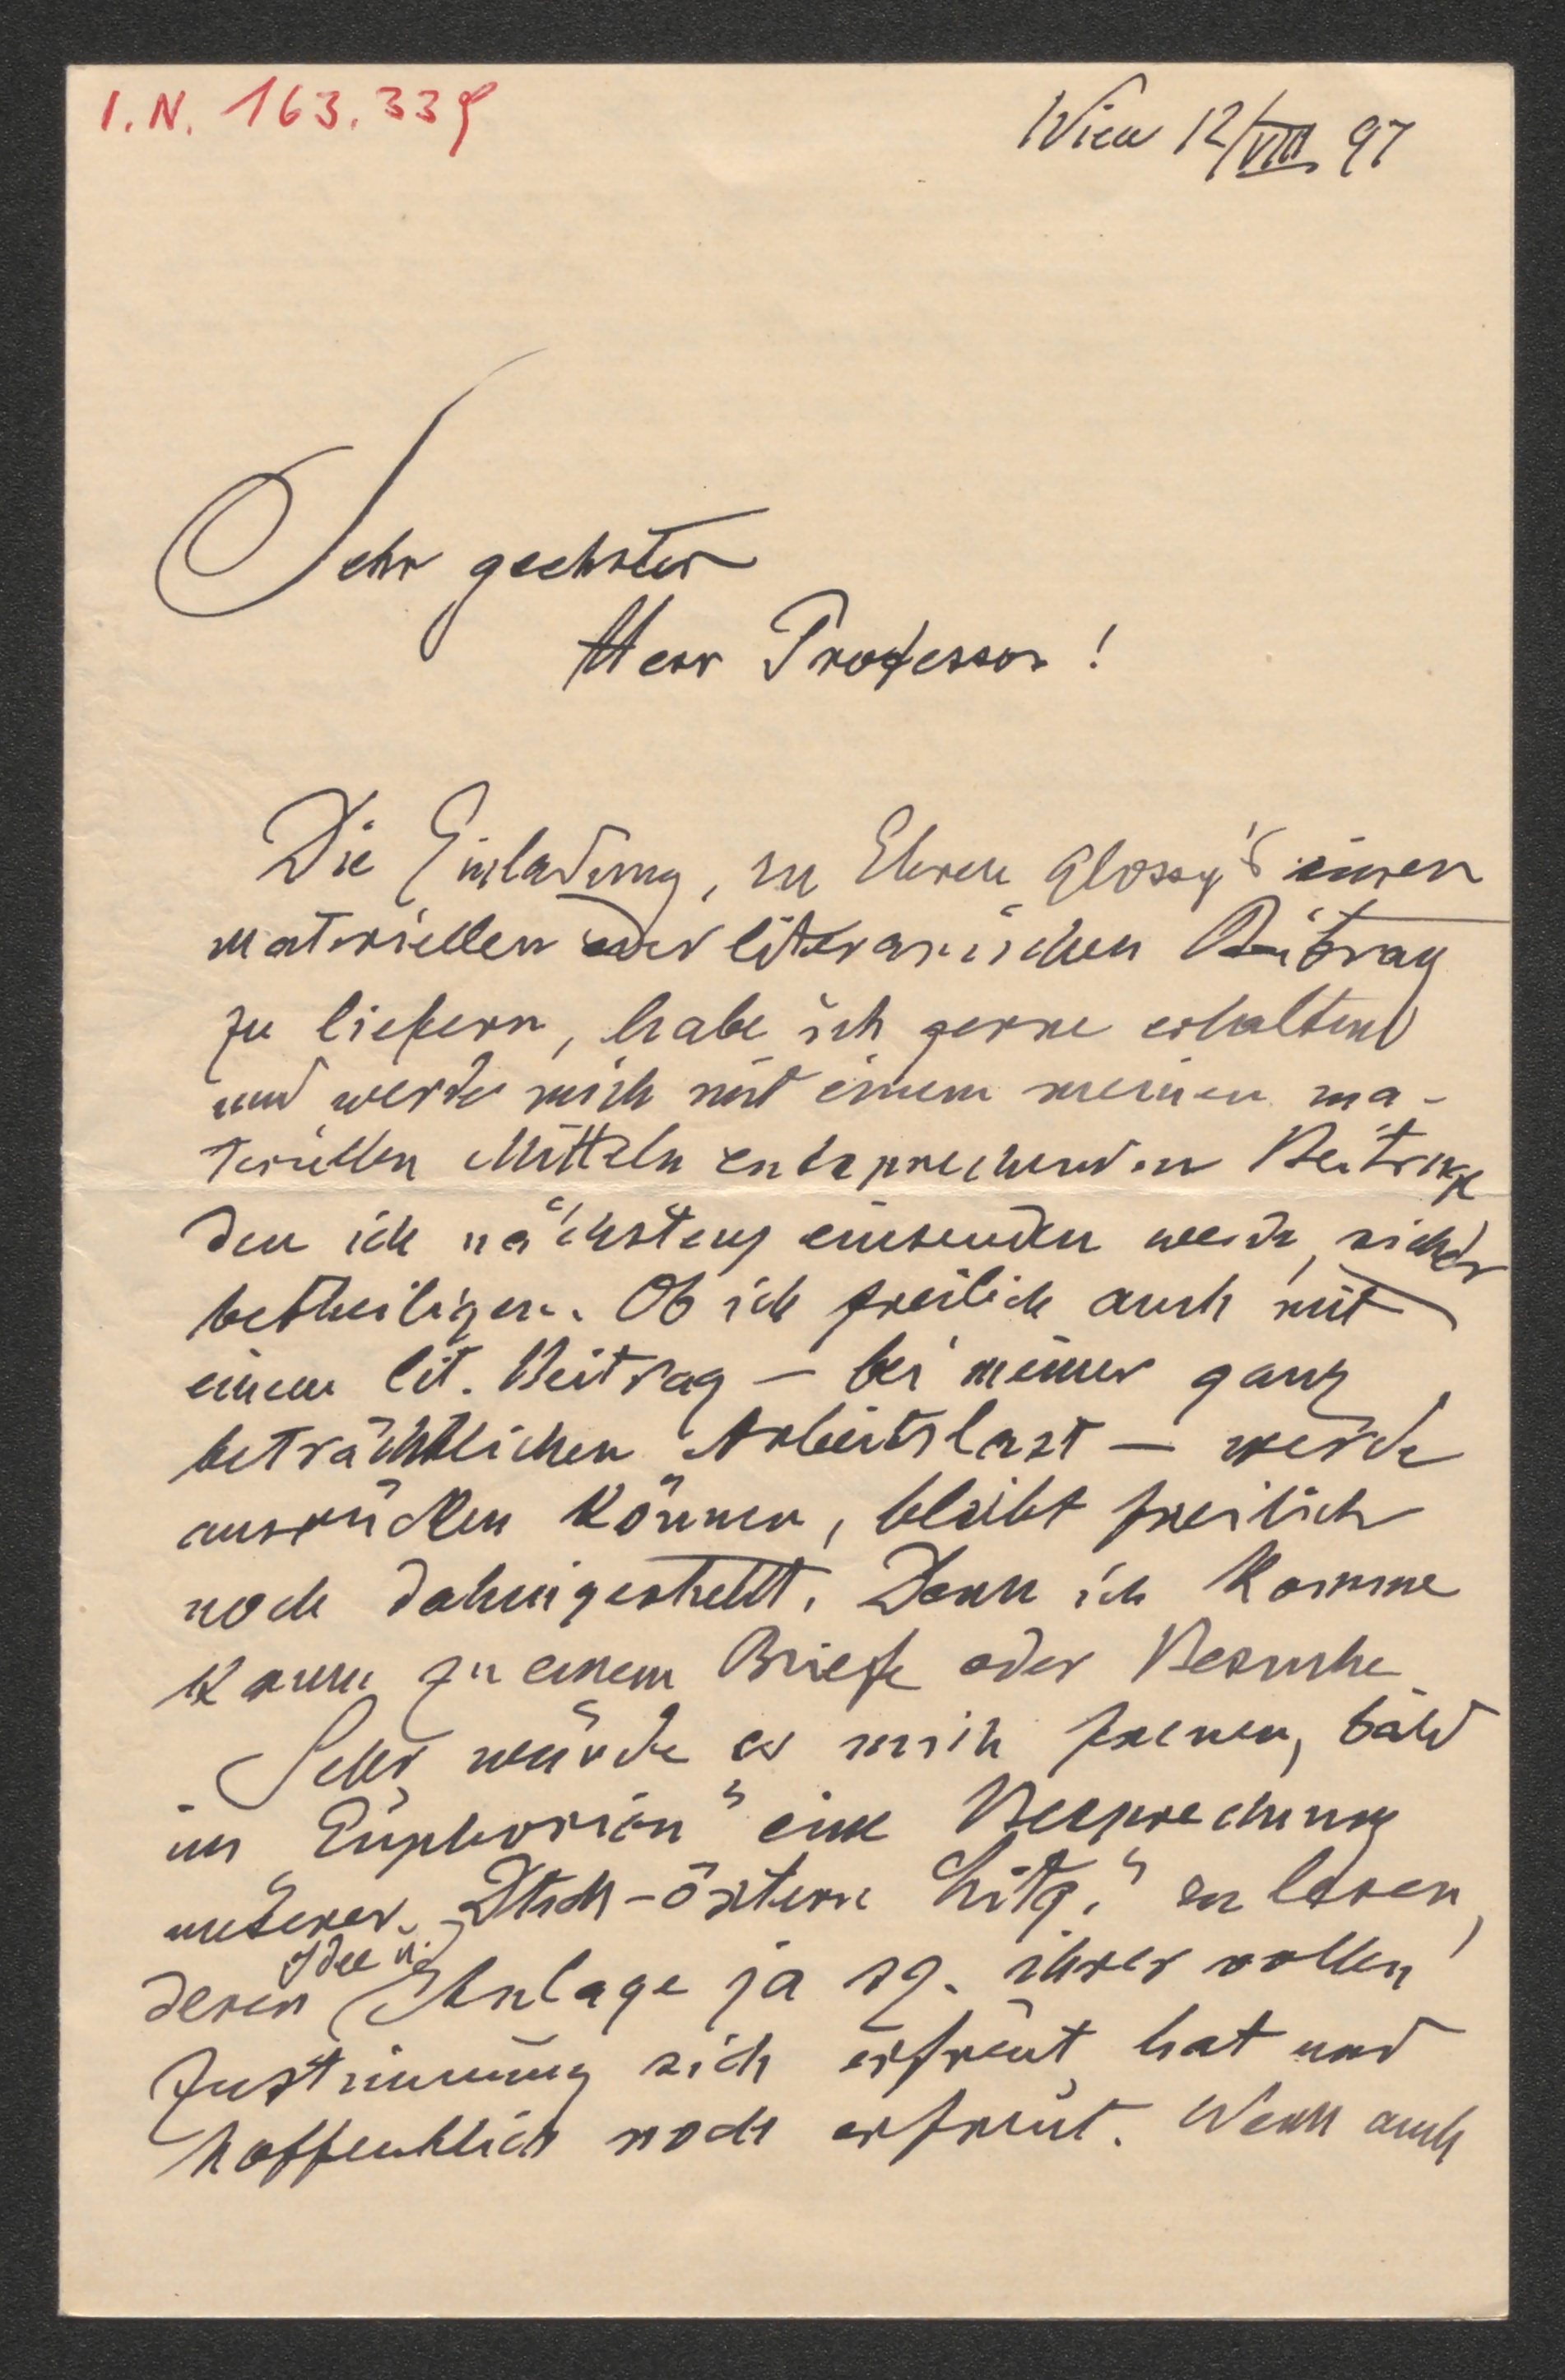 I.N. 163.339
Wien 12/VIII 97
Sehr geehrter
Herr Professor!
Die Einladung, zu Ehren Glossy's einen
materiellen oder literarischen Beitrag
zu liefern, habe ich gerne erhalten
und werde mich mit einem meinen ma-
teriellen Mitteln entsprechenden Beitrage
den ich nächstens einsenden werde, sicher
betheiligen. Ob ich freilich auch mit
einem lit. Beitrag – bei meiner ganz
beträchtlichen Arbeitslast – werde
ausrücken können, bleibt freilich
noch dahingestellt. Denn ich komme
kaum zu einem Briefe oder Besuche
Sehr würde es mich freuen, bald
im „Euphorion" eine Besprechung
unserer „Dtsch-österr Litg." zu lesen,
deren Idee u. Anlage ja sz. ihrer vollen
Zustimmung sich erfreut hat und
hoffentlich noch erfreut. Wenn auch